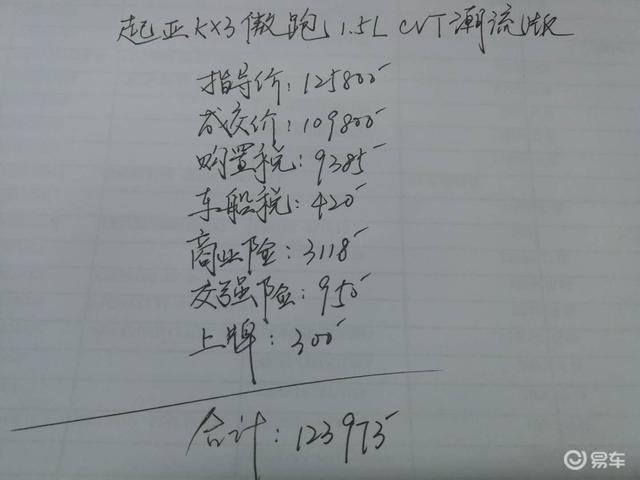 起亚KX3傲跑1.5L CVT潮流版
指导价:125800
成交价:109800
购置税:9385
车船税:420
商业险:3118
交强险:950
上牌:300
合计:123973
易车